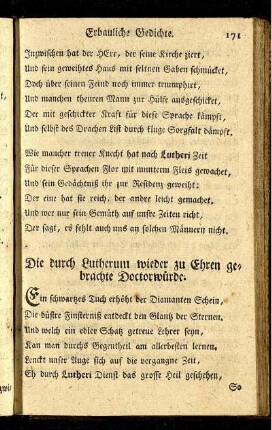 Erbauliche Gedichte. 171
Inzwischen hat der HErr, der seine Kirche ziert,
Und sein geweihtes Haus mit seltnen Gaben schmücket,
Doch über seinen Feind noch immer triumphirt,
Und manchen theuren Mann zur Hülfe ausgeschicket,
Der mit geschickter Kraft für diese Sprache kämpft,
Und selbst des Drachen List durch kluge Sorgfalt dämpft.
Wie mancher treuer Knecht hat nach Lutheri Zeit
Für dieser Sprachen Flor mit muntern Fleis gewachet,
Und sein Gedächtniß ihr zur Residenz geweiht:
Der eine hat sie reich, der andre leicht gemachet.
Und wer nur sein Gemüth auf unsre Zeiten richt,
Der sagt, es fehlt auch uns an solchen Männern nicht.
Die durch Lutherum wieder zu Ehren ge-
brachte Doctorwürde.
Ein schwartzes Tuch erhöht der Diamanten Schein,
Die düstre Finsterniß entdeckt den Glantz der Sternen,
Und welch ein edler Schatz getreue Lehrer seyn,
Kan man durchs Gegentheil am allerbesten lernen.
Lenckt unser Auge sich auf die vergangne Zeit,
Eh durch Lutheri Dienst das grosse Heil geschehen,
So